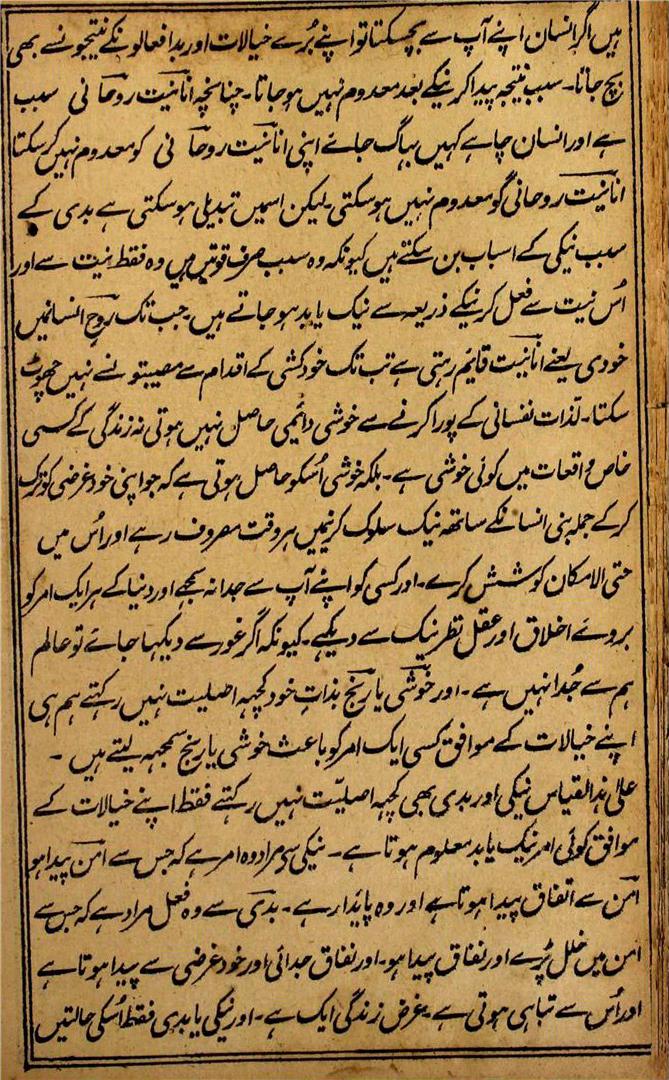 ہیں اگر انسان اپنے آپ سے بچ سکتا تو اپنے بُرے خیالات اور بد افعالونکے نتیجونسے بھی
بچ جاتا۔ سبب نتیجہ پیدا کرنیکے بعد معدوم نہیں ہو جاتا۔ چنانچہ انانیت روحانی سبب
ہے اور انسان چاہے کہیں بہاگ جائے اپنی انانیت روحانی کو معدوم نہیں کر سکتا
انانیت روحانی گو معدوم نہیں ہو سکتی۔ لیکن اسمیں تبدیلی ہو سکتی ہے بدی کے
سبب نیکی کے اسباب بن سکتے ہیں کیونکہ وہ سبب صرف قوتیں ہیں وہ فقط نیت سے اور
اُس نیت سے فعل کرنیکے ذریعہ سے نیک یا بد ہو جاتے ہیں۔ جب تک روح انسانمیں
خودی یعنے انانیت قایم رہتی ہے تب تک خودکشی کے اقدام سے مصیبتونسے نہیں چھوٹ
سکتا۔ لذات نفسانی کے پورا کرنے سے خوشی دائمی حاصل نہیں ہوتی نہ زندگی کے کسی
خاص واقعات میں کوئی خوشی ہے۔ بلکہ خوشی اُسکو حاصل ہوتی ہے کہ جو اپنی خود غرضی کو ترک
کر کے جملہ بنی انسانکے ساتھہ نیک سلوک کرنیمیں ہر وقت مصروف رہے اور اُس میں
حتی الامکان کوشش کرے۔ اور کسی کو اپنے آپ سے جدا نہ سمجھے اور دنیا کے ہر ایک امر کو
بروئے اخلاق اور عقل نظر نیک سے دیکہے۔ کیونکہ اگر غور سے دیکہا جائے تو عالم
ہم سے جُدا نہیں ہے۔ اور خوشی یا رنج بذاتِ خود کچہہ اصلیت نہیں رکہتے ہم ہی
اپنے خیالات کے موافق کسی ایک امر کو باعث خوشی یا رنج سمجہہ لیتے ہیں۔
علیٰ ہذالقیاس نیکی اور بدی بھی کچہہ اصلیّت نہیں رکہتے فقط اپنے خیالات کے
موافق کوئی امر نیک یا بد معلوم ہوتا ہے۔ نیکی سے مراد وہ امر ہے کہ جس سے امن پیدا ہو
امن سے اتفاق پیدا ہوتا ہے اور وہ پائدار ہے۔ بدی سے وہ فعل مراد ہے کہ جس سے
امن میں خلل پڑے اور نفاق پیدا ہو۔ اور نفاق جدائی اور خود غرضی سے پیدا ہوتا ہے
اور اُس سے تباہی ہوتی ہے۔ غرض زندگی ایک ہے۔ اور نیکی یا بدی فقط اُسکی حالتیں